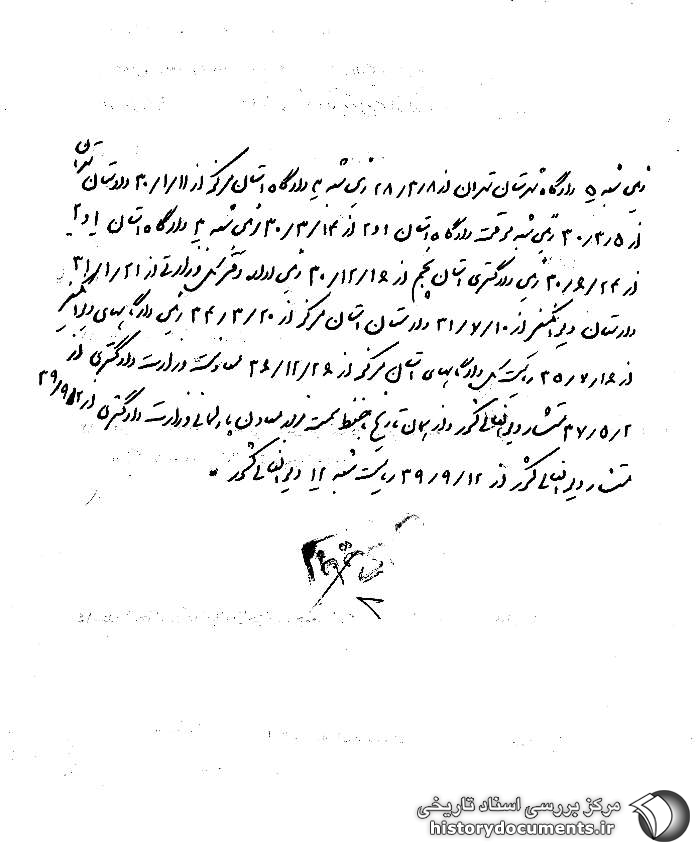 رئیس شعبه ۵ دادگاه شهرستان تهران از ۲۸/۲/۸ رئیس شعبه ۲ دادگاه استان مرکز از ۳۰/۱/۱۱ دادستان تهران
از ۳۰/۲/۵ رئیس شعبه موقت دادگاه استان ۱ و ۲ از ۳۰/۳/۱۴ رئیس شعبه ۲ دادگاه استان ۱ و ۲
از ۳۰/۶/۲۴ رئیس دادگستری استان پنجم از ۳۰/۱۲/۱۶ رئیس اداره دفتر کل وزارتی از ۳۱/۱/۲۱
دادستان دیوان کیفر از ۳۱/۷/۱۰ دادستان استان مرکز از ۳۴/۳/۲۰ رئیس دادگاههای دیوان کیفر
از ۳۵/۷/۱۶ ریاست کل دادگاههای استان مرکز از ۳۶/۱۲/۲۶ معاونت وزارت دادگستری از
۳۷/۵/۲ مستشار دیوانعالی کشور و از همان تاریخ با حفظ سمت فوق معاون پارلمانی وزارت دادگستری از ۳۹/۹/۱۲
مستشار دیوانعالی کشور از ۳۹/۹/۱۲ ریاست شعبه ۱۲ دیوانعالی کشور.
مرکز بررسی اسناد تاریخی
historydocuments.ir